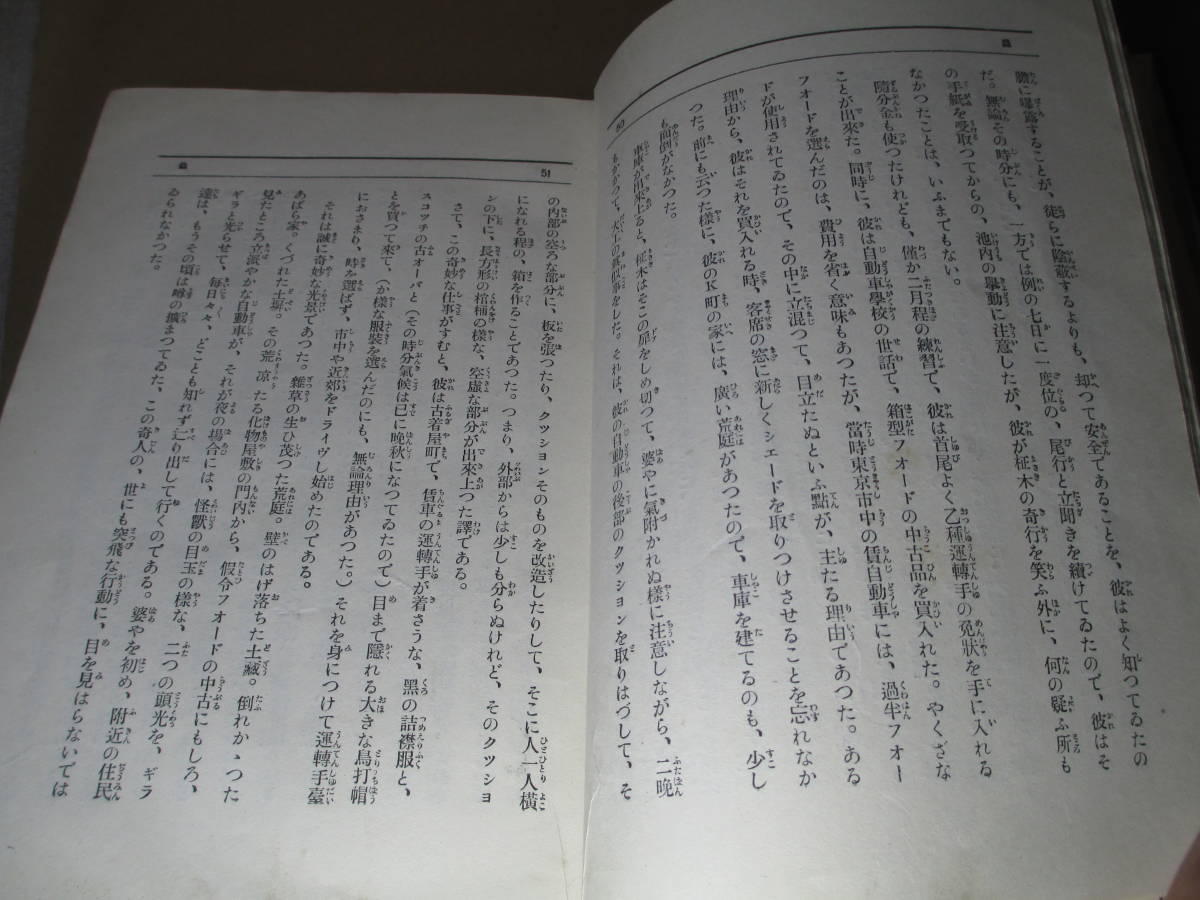 蟲
膽に曝露することが、徒らに陰蔽するよりも、却つて安全であることを、彼はよく知つてゐたの
だ。無論その時分にも、一方では例の七日に一度位の、尾行と立聞きを續けてゐたので、彼はそ
の手紙を受取つてからの、池内の擧動に注意したが、彼が柾木の奇行を笑ふ外に、何の疑ふ所も
なかつたことは、いふまでもない。
隨分金も使つたけれども、僅か二月程の練習で、彼は首尾よく乙種運轉手の免狀を手に入れる
ことが出來た。同時に、彼は自動車學校の世話で、箱型フォードの中古品を買入れた。やくざな
フォードを選んだのは、費用を省く意味もあつたが、當時東京市中の賃自動車には、過半フォー
ドが使用されてゐたので、その中に立混つて、目立たぬといふ點が、主たる理由であつた。ある
理由から、彼はそれを買入れる時、客席の窓に新しくシェードを取りつけさせることを忘れなか
つた。前にも云つた樣に、彼のK町の家には、廣い荒庭があつたので、車庫を建てるのも、少し
も面倒がなかつた。
車庫が出來上ると、柾木はそこの扉をしめ切つて、婆やに氣附かれぬ樣に注意しながら、二晩
もかかつて、大工の眞似事をした。それは、彼の自動車の後部のクッションを取りはづして、そ
50
蟲
51
の内部の空ろな部分に、板を張つたり、クッションそのものを改造したりして、そこに人一人橫
になれる程の、箱を作ることであつた。つまり、外部からは少しも分らぬけれど、そのクッショ
ンの下に、長方形の棺桶の樣な、空虛な部分が出來上つた譯である。
さて、この奇妙な仕事がすむと、彼は古着屋町で、賃車の運轉手が着さうな、黑の詰襟服と、
スコッチの古オーバと（その時分氣候は已に晩秋になつてゐたので）目まで隱れる大きな鳥打帽
とを買つて來て、（か樣な服裝を選んだのにも、無論理由があつた。）それを身につけて運轉手臺
におさまり、時を選ばず、市中や近郊をドライヴし始めたのである。
それは誠に奇妙な光景であつた。雜草の生ひ茂つた荒庭。壁のはげ落ちた土藏。倒れかゝつた
あばら家。くづれた土塀。その荒凉たる化物屋敷の門內から、假令フォードの中古にもしろ、
見たところ立派やかな自動車が、それが夜の場合には、怪獸の目玉の樣な、二つの頭光を、ギラ
ギラと光らせて、每日々々、どことも知れず辷り出して行くのである。婆やを初め、附近の住民
達は、もうその頃は噂の擴まつてゐた、この奇人の、世にも突飛な行動に、目を見はらないでは
ゐられなかつた。